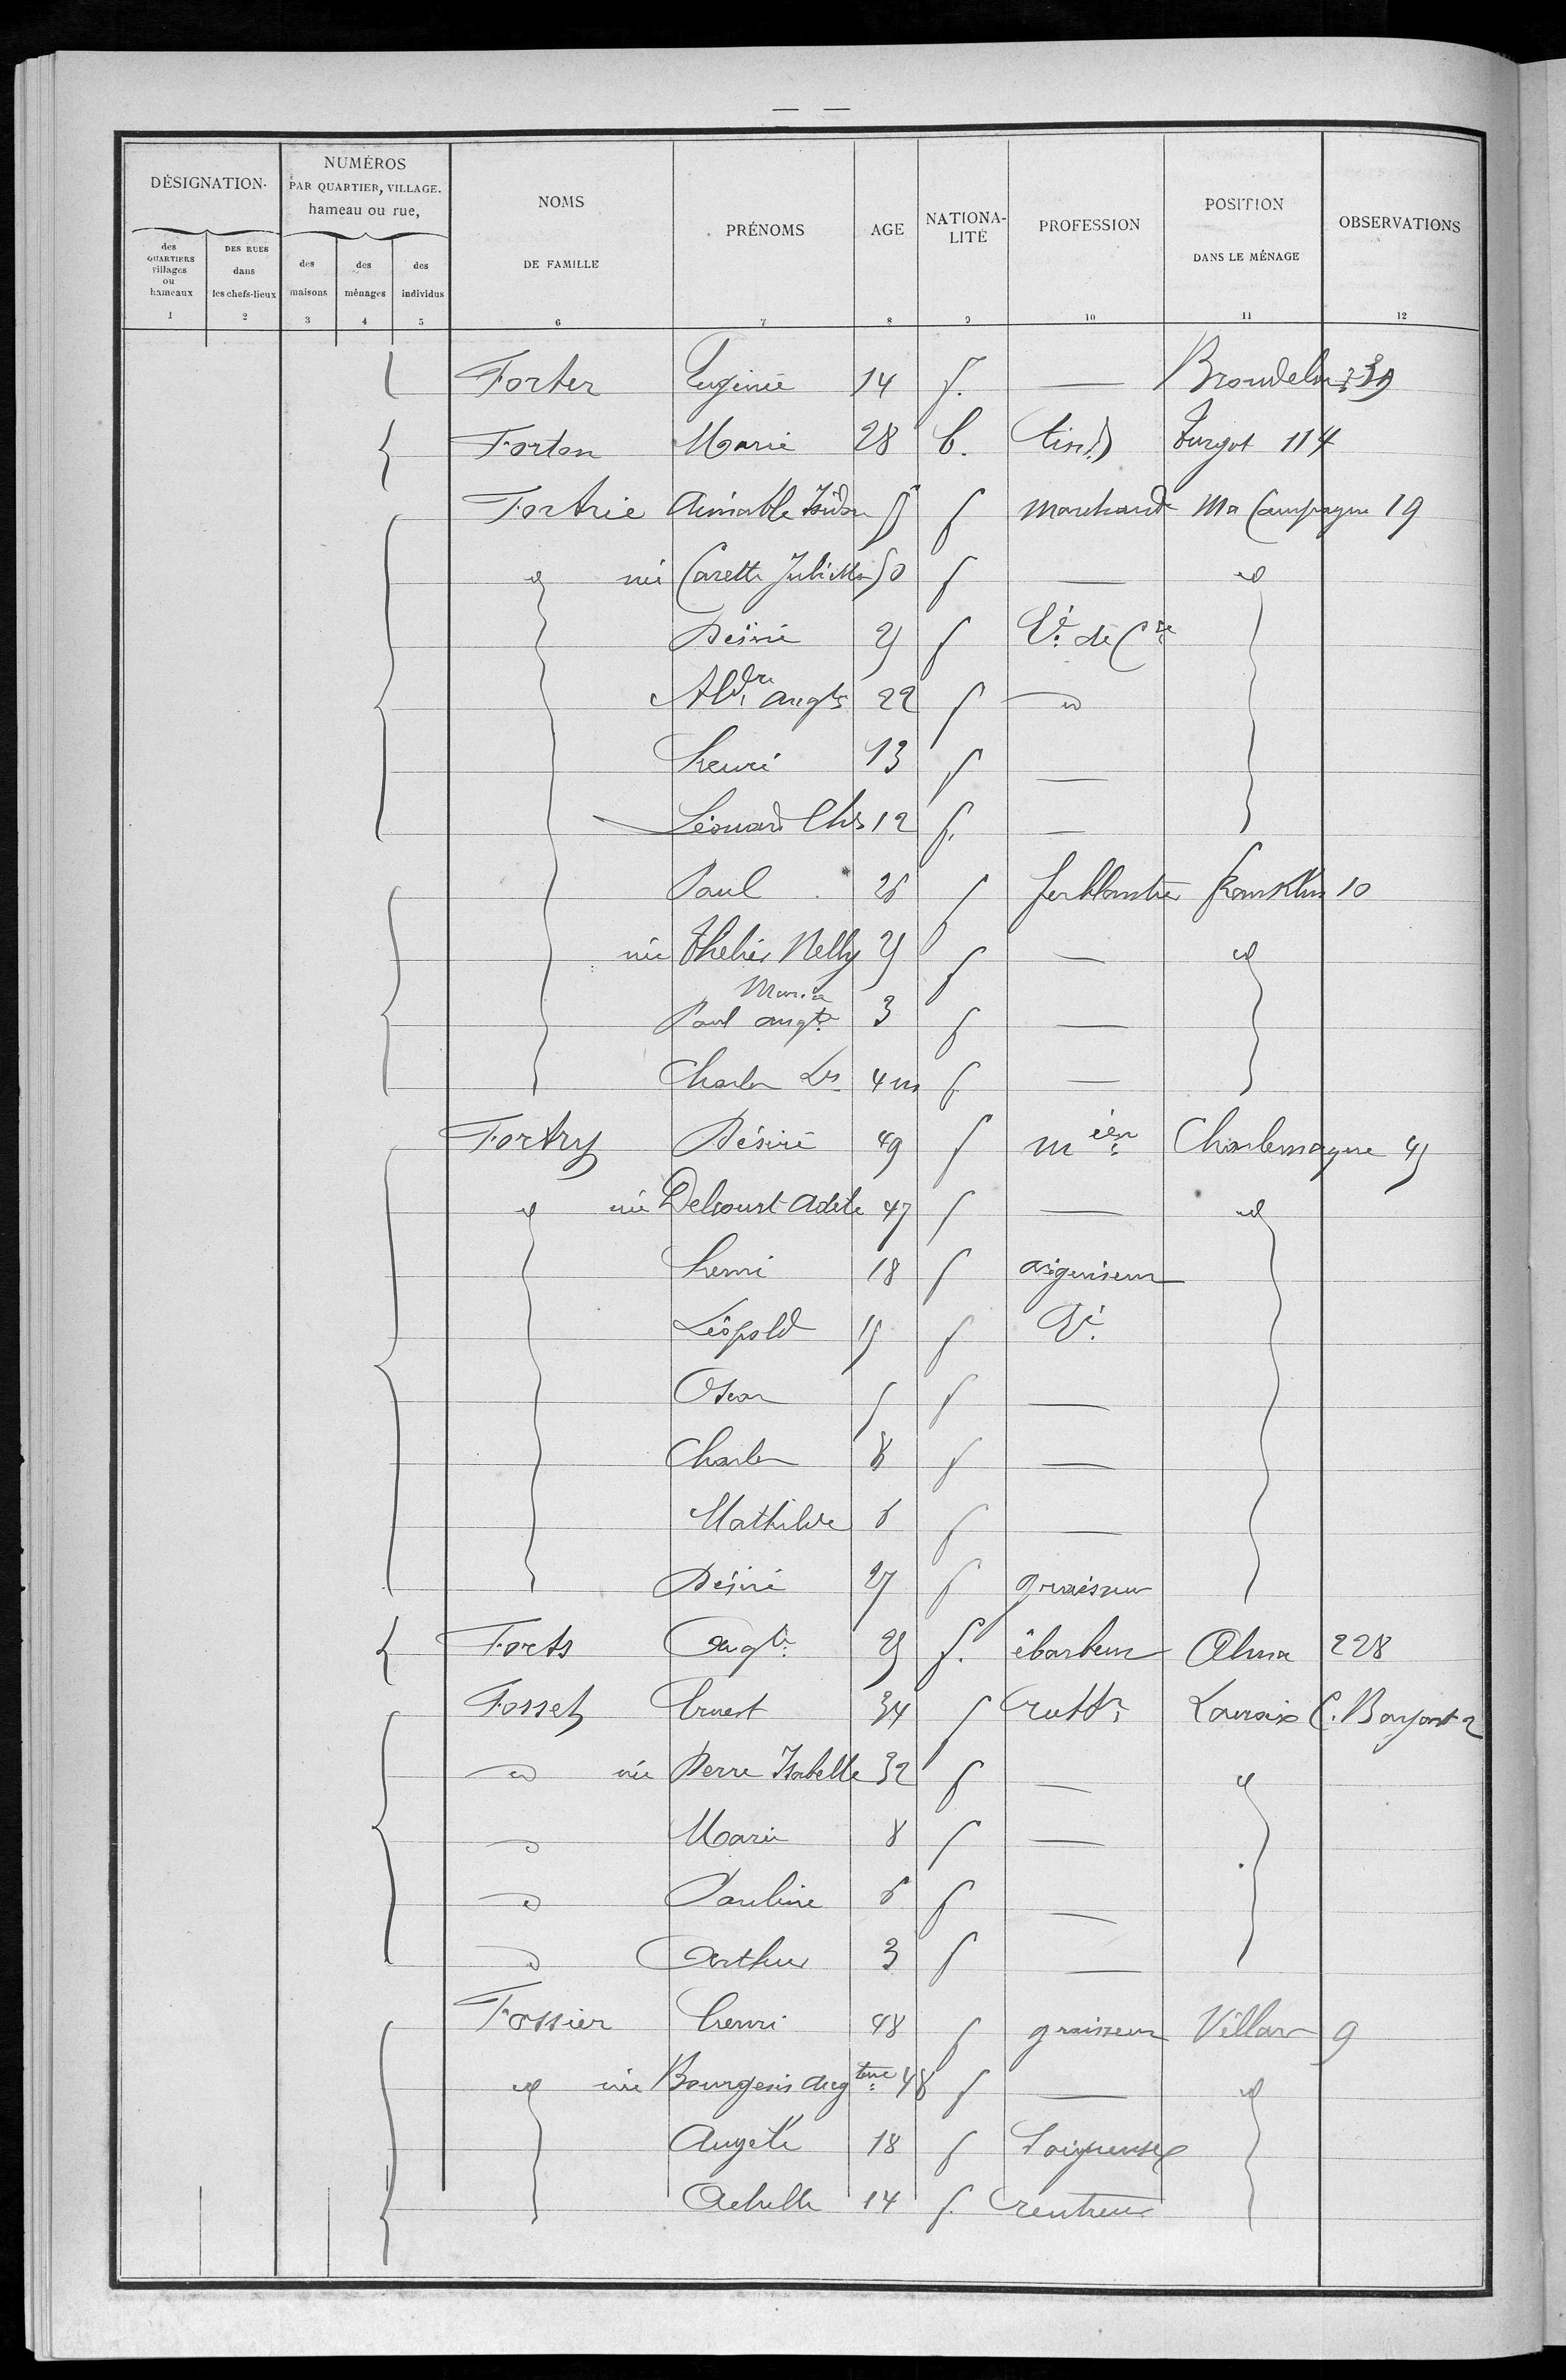 — —
DÉSIGNATION.
NUMÉROS
PAR QUARTIER, VILLAGE.
hameau ou rue,
NOMS
DE FAMILLE
PRÉNOMS
AGE
NATIONA-
LITÉ
PROFESSION
POSITION
DANS LE MÉNAGE
OBSERVATIONS
des
QUARTIERS
villages
ou
hameaux
DES RUES
dans
les chefs-lieux
des
maisons
des
ménages
des
individus
1 2 3 4 5 6 7 8 9 10 11 12
Forter Eugénie 14 f. —
Forton Marie 28 b. tisd Turgot 114
Fortrie Aimable Isidor f marchand Ma Campagne 19
id née Carette Juliette 50 f — id
Désiré 25 f Vé. de Cce
Aldre Augte 22 f id
henri 13 f —
Léonard Chs 12 f. —
Paul 26 f ferblantier Franklin 10
née Thelier Nelly 25 f — id
Maria
Paul augte 3 f —
Charles Ls 4 m f —
Fortry Désiré 49 f mièr Charlemagne 45
id née Delcourt Adèle 47 f — id
henri 18 f aiguiseur
Léopold 15 f Vé.
Oscar f —
Charles 8 f —
Mathilde 6 f —
Désiré 27 f graisseur
Forts Augte 25 f. ébarbeur Alma 228
Fosset Ernest 34 f rattr
id née Derre Isabelle 32 f — id
id Marie 8 f —
id Pauline 6 f —
id Arthur 3 f —
Fossier henri 48 f graisseur Villars 9
id née Bourgeois Augtine 48 f — id
Angèle 18 f Soigneuse
Achille 14 f. rentreur